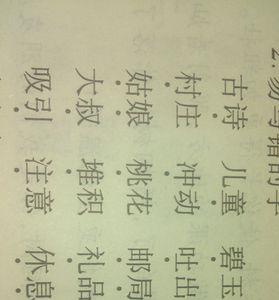 2.易写错的字
古诗 儿童 碧玉
村庄 冲动 吐出
姑娘 桃花 邮局
大叔 堆积 礼品
吸引 注意 休息